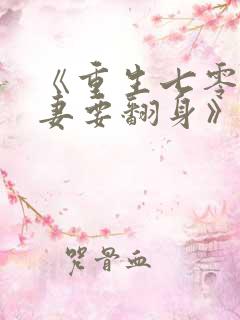 《重生七零
妻要翻身》
咒骨血